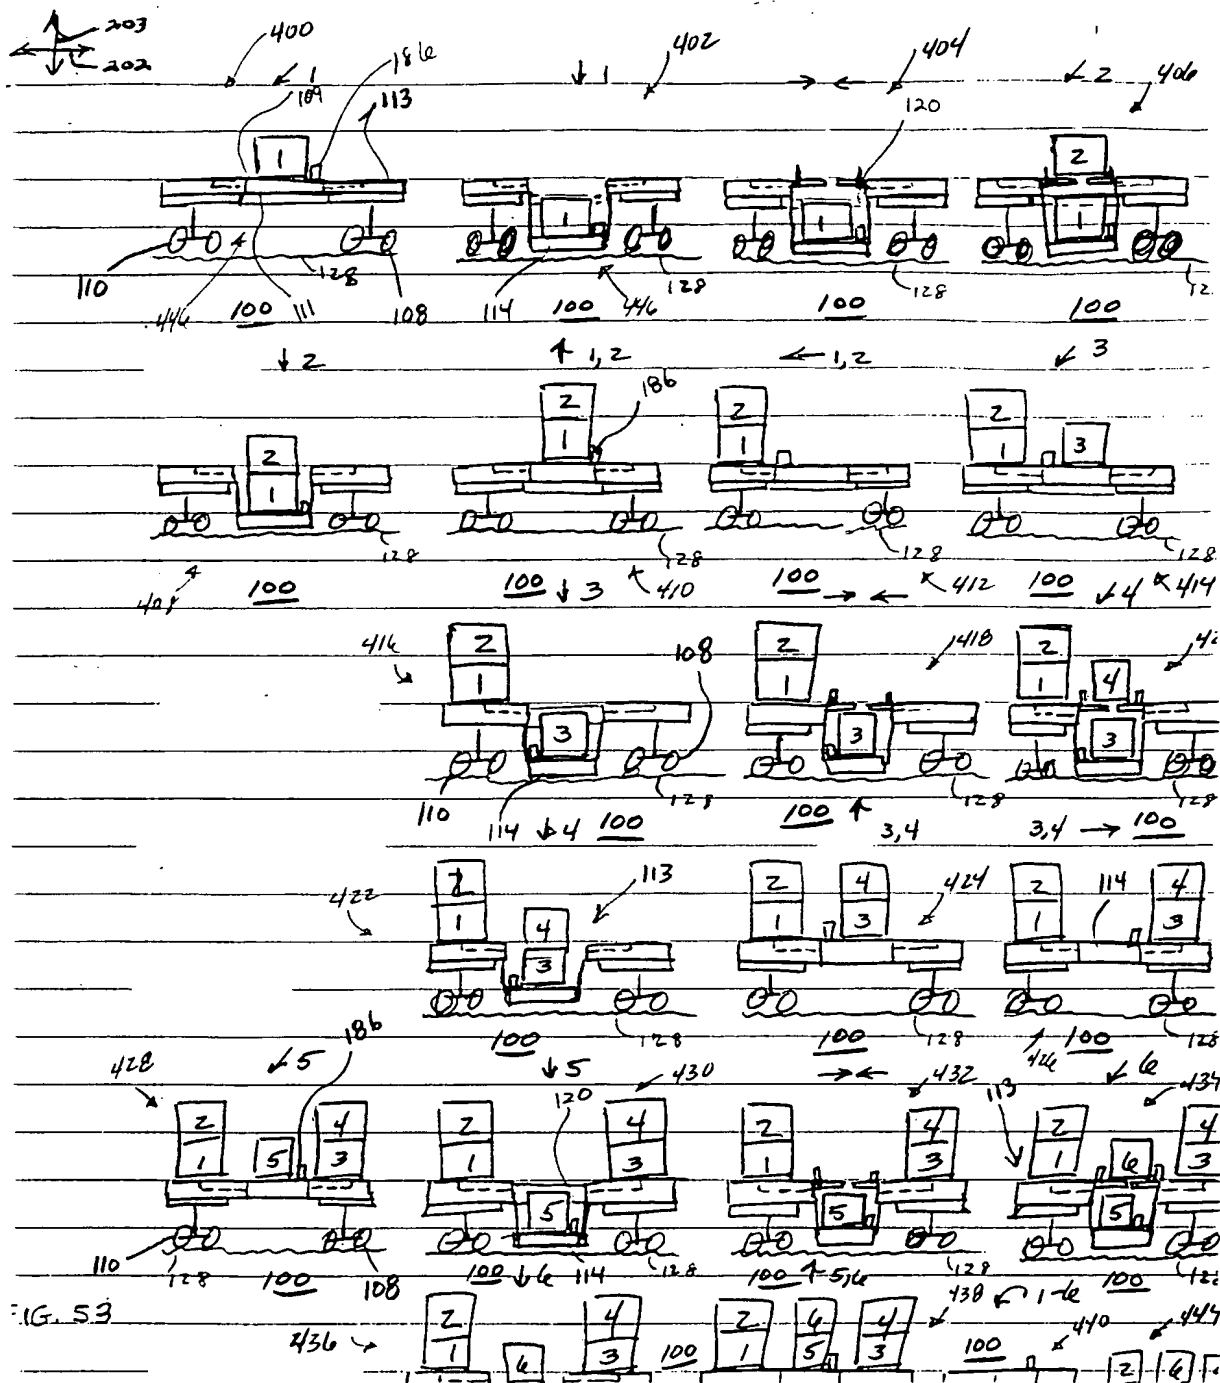 203
202
400
1
109
113
186
1
402
404
120
2
406
1
1
1
2
1
110
128
446
100
111
108
128
114
100
446
128
100
100
2
1,2
1,2
3
186
2
1
2
1
2
1
2
1
3
128
128
128
128
408
100
100
3
410
100
412
100
4
414
416
2
1
108
2
1
418
2
1
4
3
3
3
110
128
128
128
114
4
100
100
3,4
3,4
100
422
1
4
3
113
2
1
4
3
424
2
1
114
4
3
100
128
100
128
426
100
128
428
5
186
5
120
430
432
113
6
2
1
5
4
3
2
1
5
4
3
2
1
5
4
3
2
1
6
5
4
3
110
128
100
108
100
6
114
128
100
5,6
128
100
FIG. 53
436
2
1
6
4
3
100
2
1
6
5
4
3
438
1-6
100
440
444
2
6